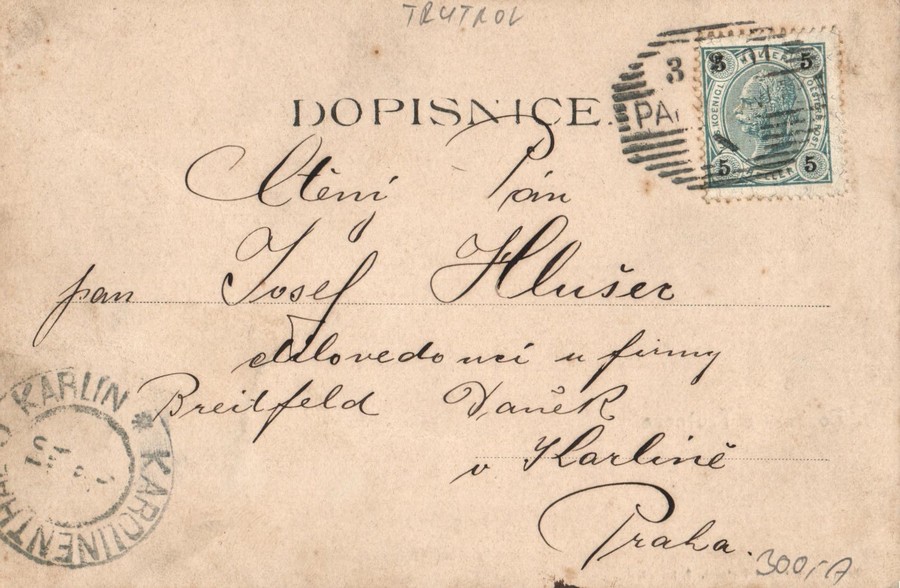 TRUTNOV
DOPISNICE.
3
PA
5 5
5 5
Ctěný Pán
pan Josef Hlušec
dílovedoucí u firmy
Breitfeld Daněk
v Karlině
Praha.
KARLIN * KAROLINENTHAL
300,-